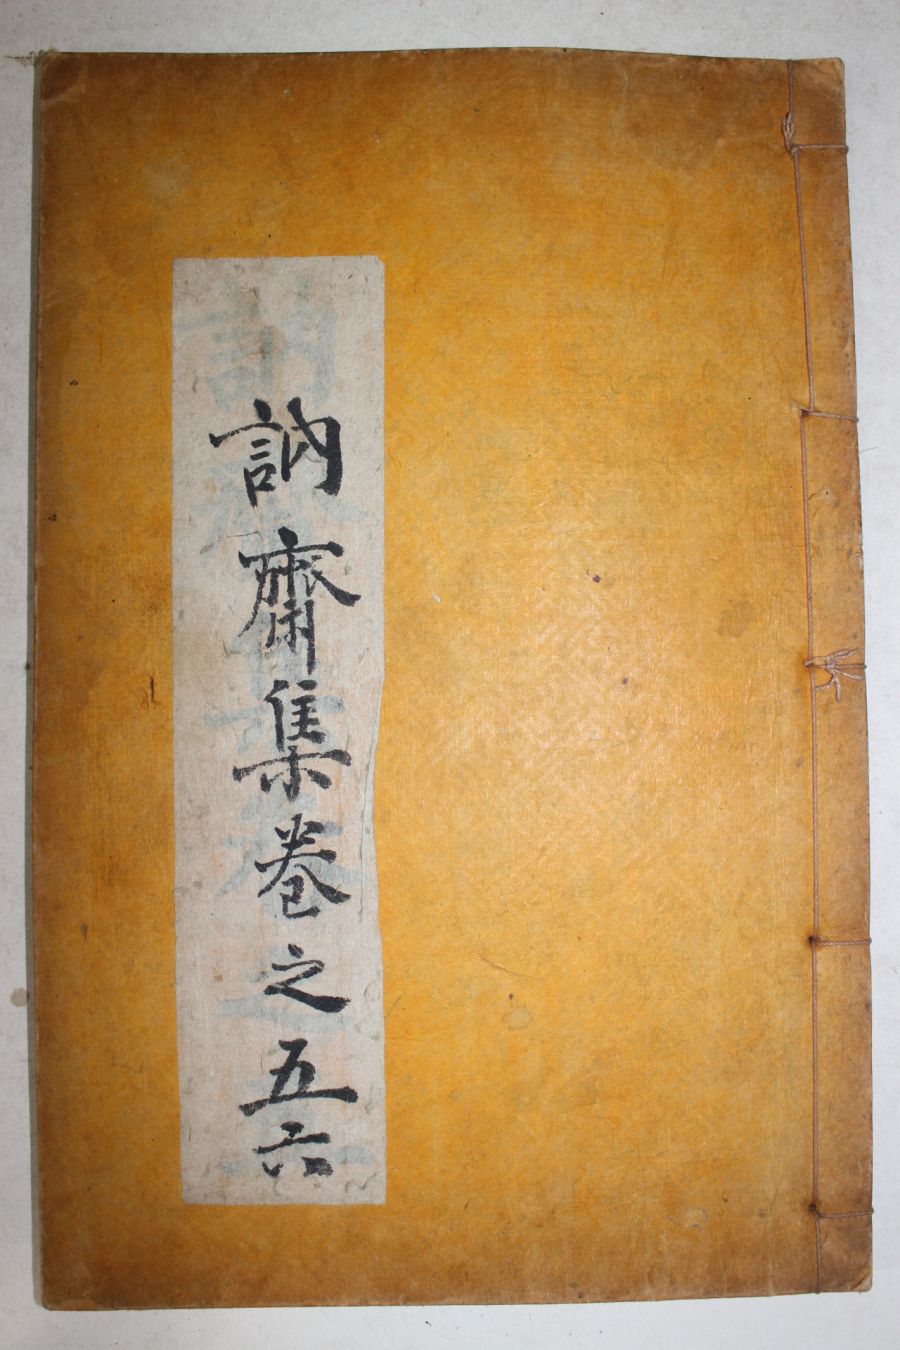 訥齋集卷之五六